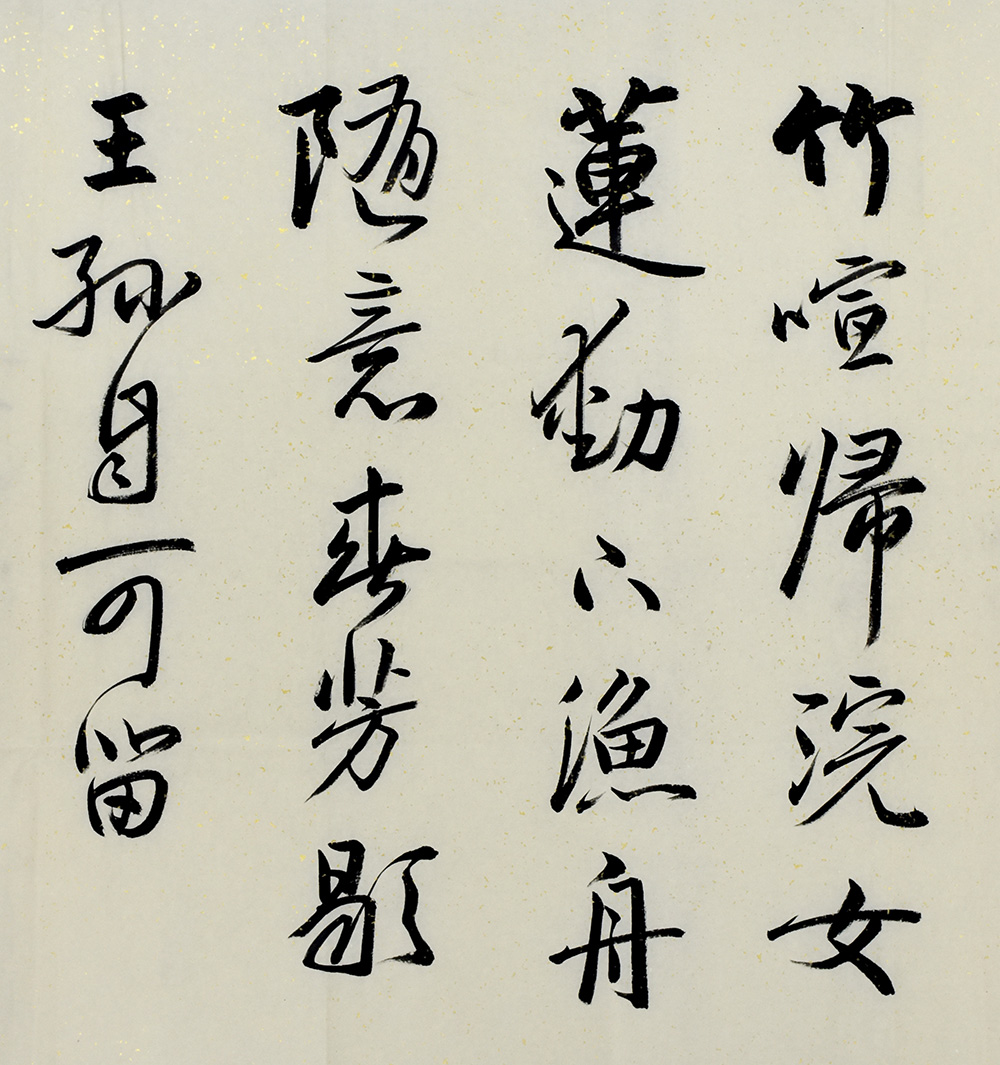 竹喧帰浣女
蓮動下漁舟
隨意春芳歇
王孫自可留